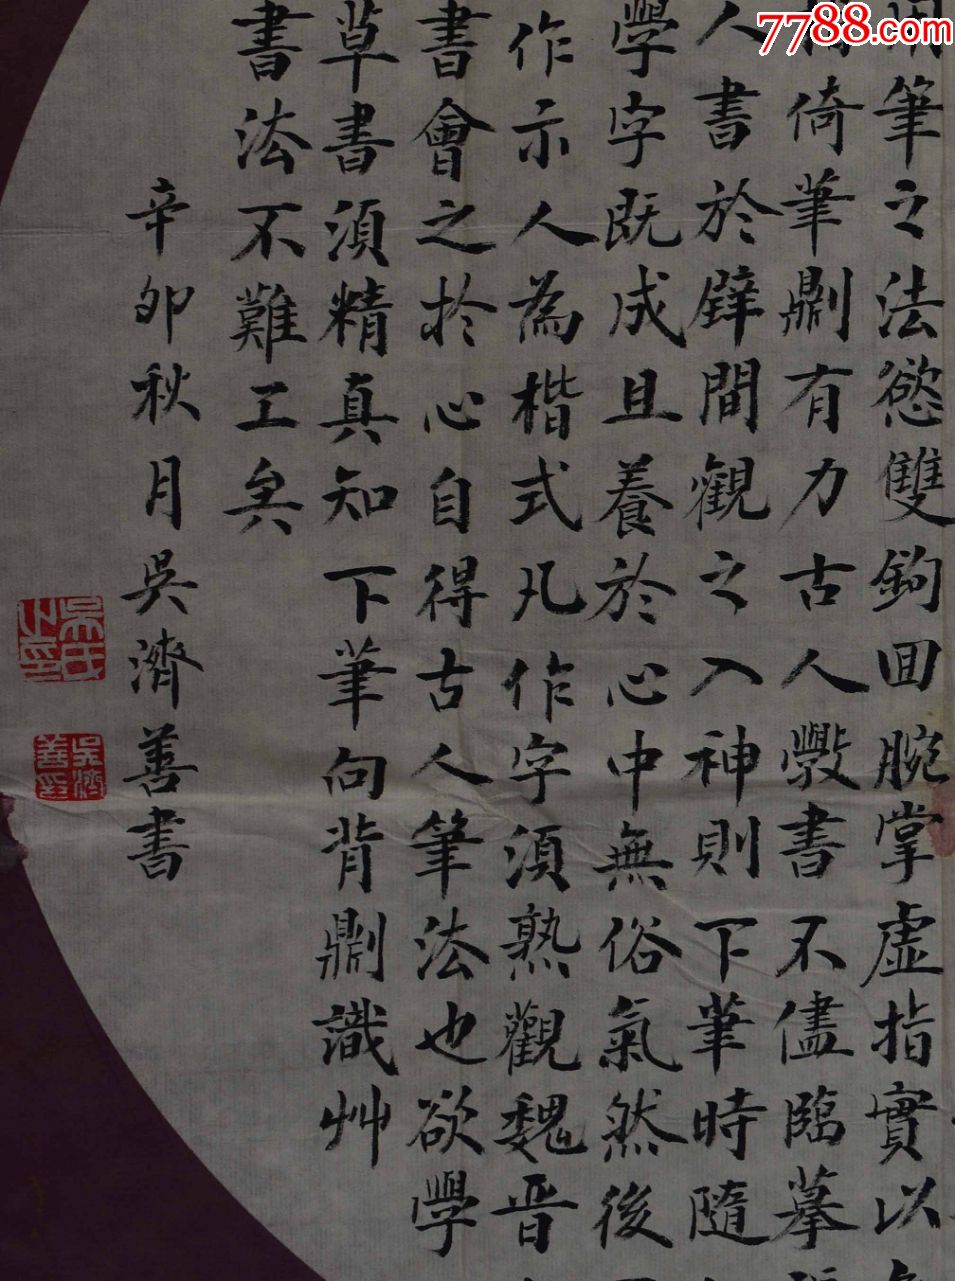 7788.com
用筆之法慾雙鉤囬腕掌虛指實以
指倚筆則有力古人斆書不儘臨摹張
人書於壁間觀之入神則下筆時隨
學字既成且養於心中無俗氣然後
作示人為楷式凡作字須熟觀魏晉
書會之於心自得古人筆法也欲學
草書須精真知下筆向背則識艸
書法不難工矣
辛卯秋月吳濟善書
吳氏之印
吳濟善印